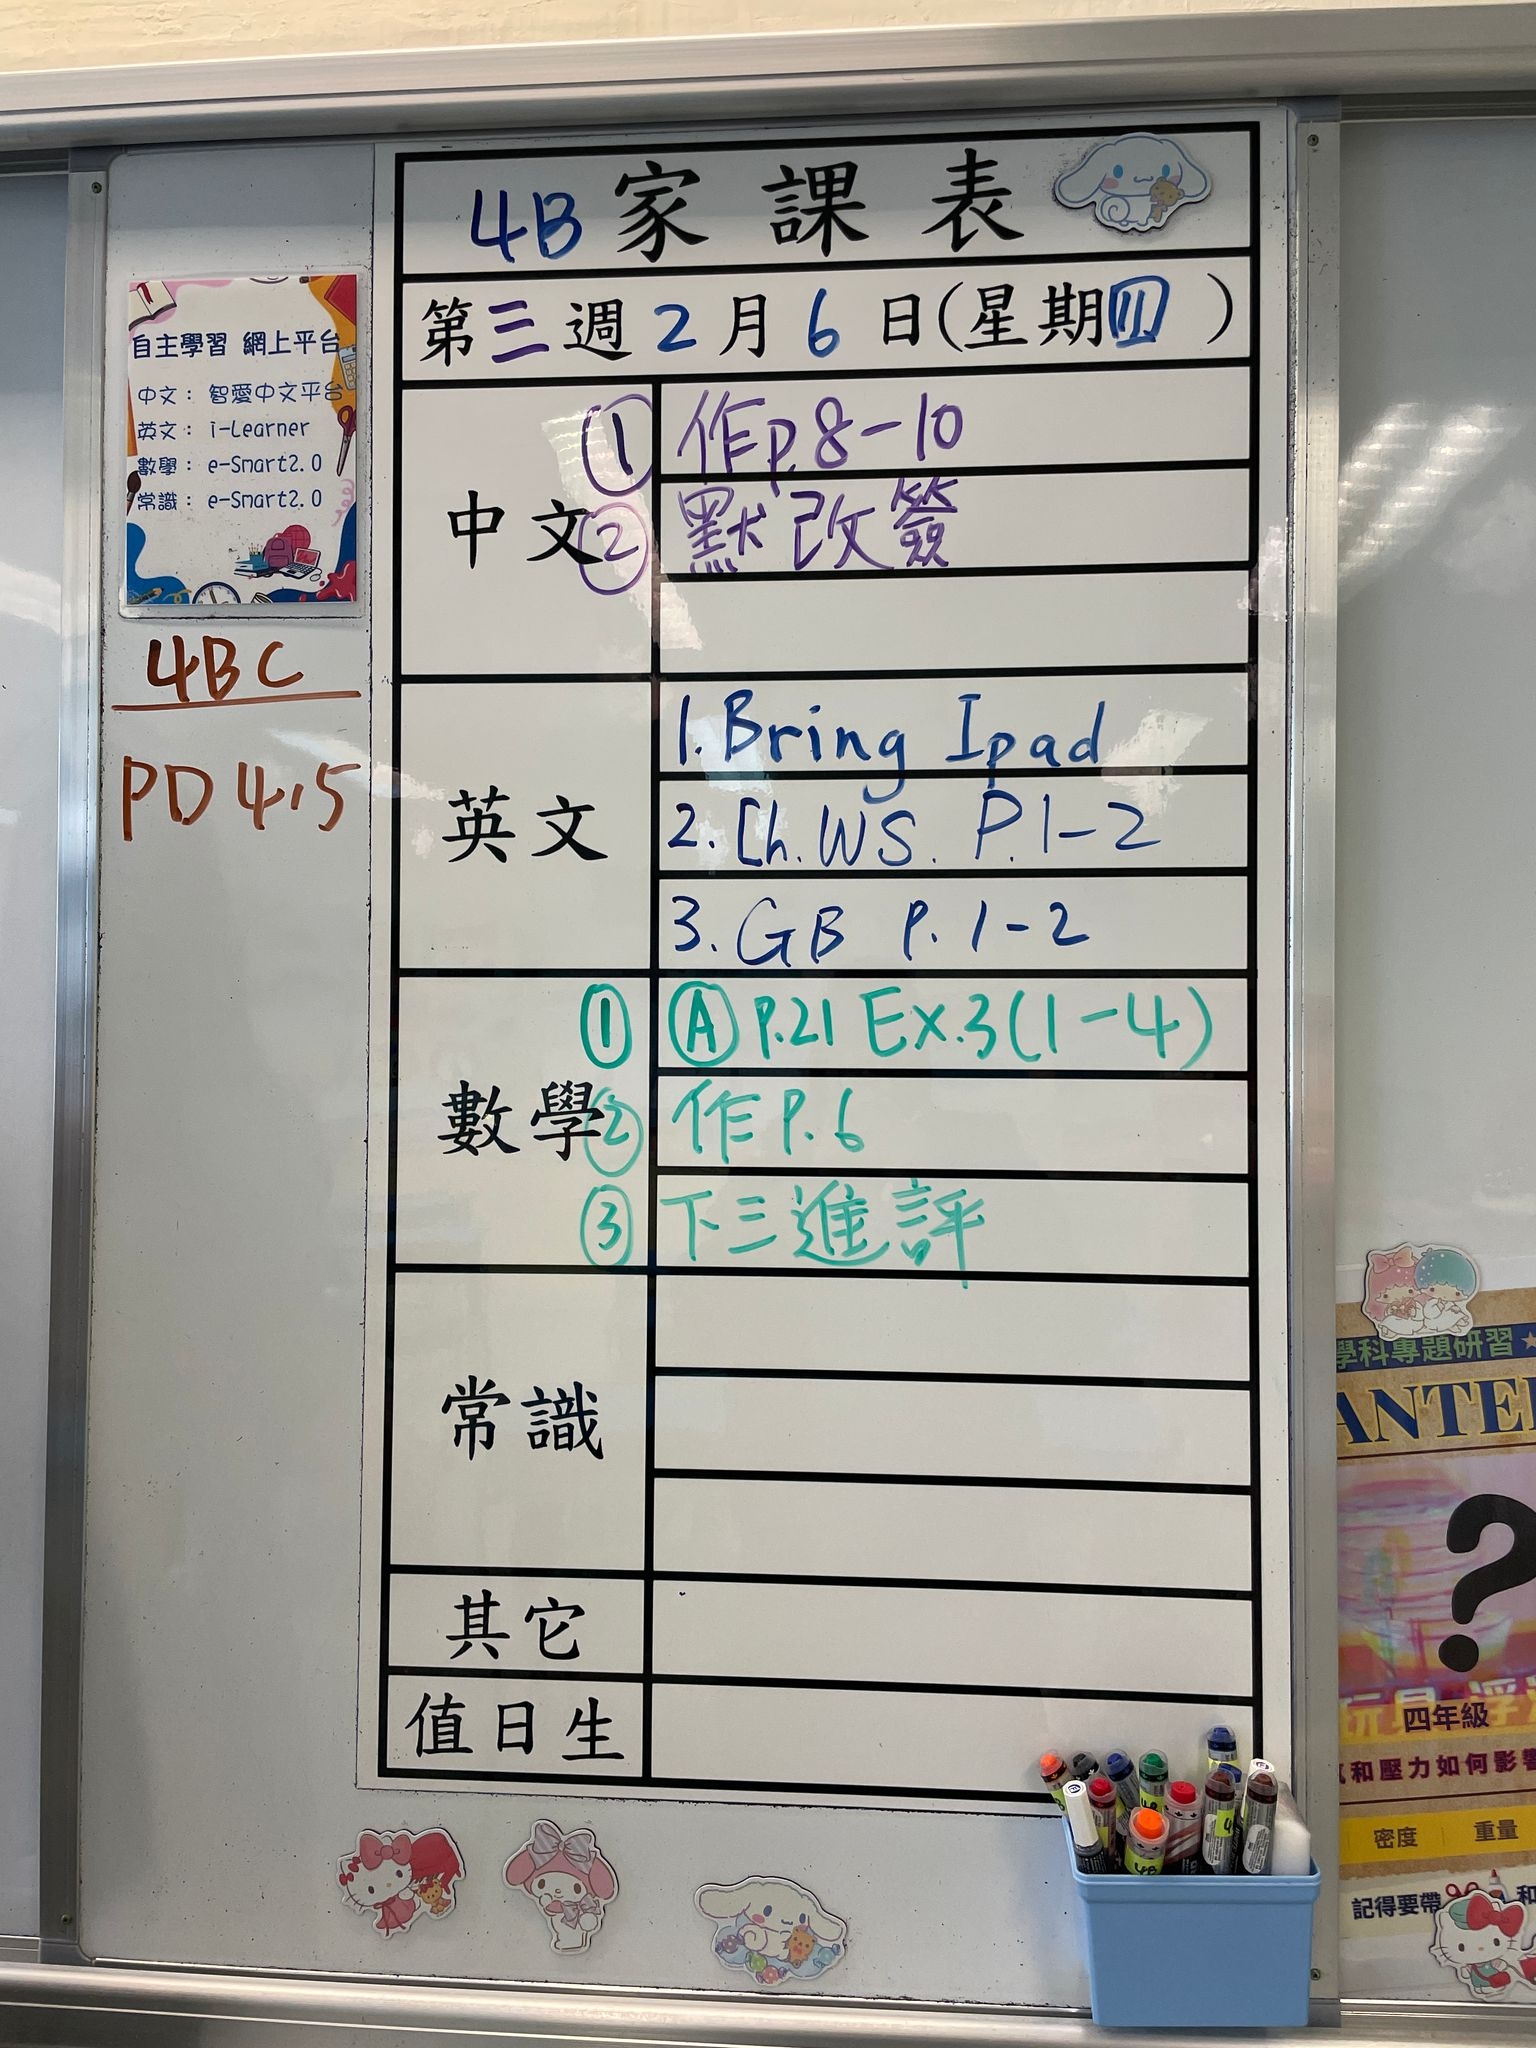 4B家課表
第三週2月6日(星期四)
自主學習 網上平台
中文：智愛中文平台
英文：i-Learner
數學：e-Smart2.0
常識：e-Smart2.0
4BC
PD 4.5
中文
① 作p.8-10
② 默改簽
英文
1. Bring Ipad
2. Ch. WS. P.1-2
3. GB P. 1-2
數學
① Ⓐ P.21 Ex.3(1-4)
② 作P.6
③ 下三進評
常識
其它
值日生
學科專題研習
ANTE
?
四年級
和壓力如何影響
密度 重量
記得要帶